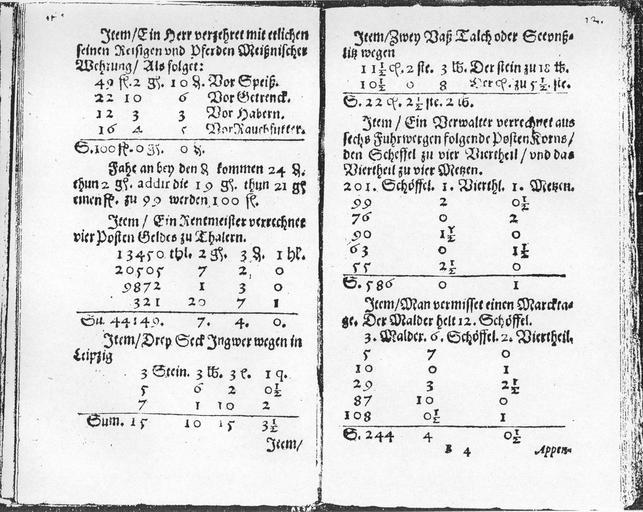 Item/Ein Herr verzehret mit etlichen
seinen Reisigen vnd Pferden Meißnischer
Wehrung/ Als folget:
49 fl. 2 gß. 10 ₰. Vor Speiß.
22 10 6 Vor Getrenck.
12 3 3 Vor Habern.
16 4 5 Vor Rauchfutter.
S. 100 fl. 0 gß. 0 ₰.
Fahe an bey den ₰ kommen 24 ₰.
thun 2 gß. addir die 19 gß. thun 21 gß
einen fl. zu 99 werden 100 fl.
Item / Ein Rentmeister verrechnet
vier Posten Geldes zu Thalern.
13450 thl. 2 gß. 3 ₰. 1 hl.
20505 7 2 0
9872 1 3 0
321 20 7 1
Su. 44149. 7. 4. 0.
Item/Drey Seck Ingwer wegen in
Leipzig
3 Stein. 3 lb. 3 l. 1 q.
5 6 2 0½
7 1 10 2
Sum. 15 10 15 3½
Item/
Item/Zwey Vaß Talch oder Seevnß-
litz wegen
11½ ct. 2 ste. 3 lb. Der stein zu 18 lb.
10½ 0 8 Der ct. zu 5½ ste.
S. 22 ct. 2½ ste. 2 lb.
Item / Ein Verwalter verrechnet aus
sechs Fuhrwergen folgende Posten Korns/
den Scheffel zu vier Viertheil / vnd das
Viertheil zu vier Metzen.
201. Schöffel. 1. Vierthl. 1. Metzen.
99 2 0½
76 0 2
90 1½ 0
63 0 1½
55 2½ 0
S. 586 0 1
Item/Man vermisset einen Marckta-
ge. Der Malder helt 12. Schöffel.
3. Malder. 6. Schöffel. 2. Viertheil.
5 7 0
10 0 1
29 3 2½
87 10 0
108 0½ 1
S. 244 4 0½
B 4 Appen-